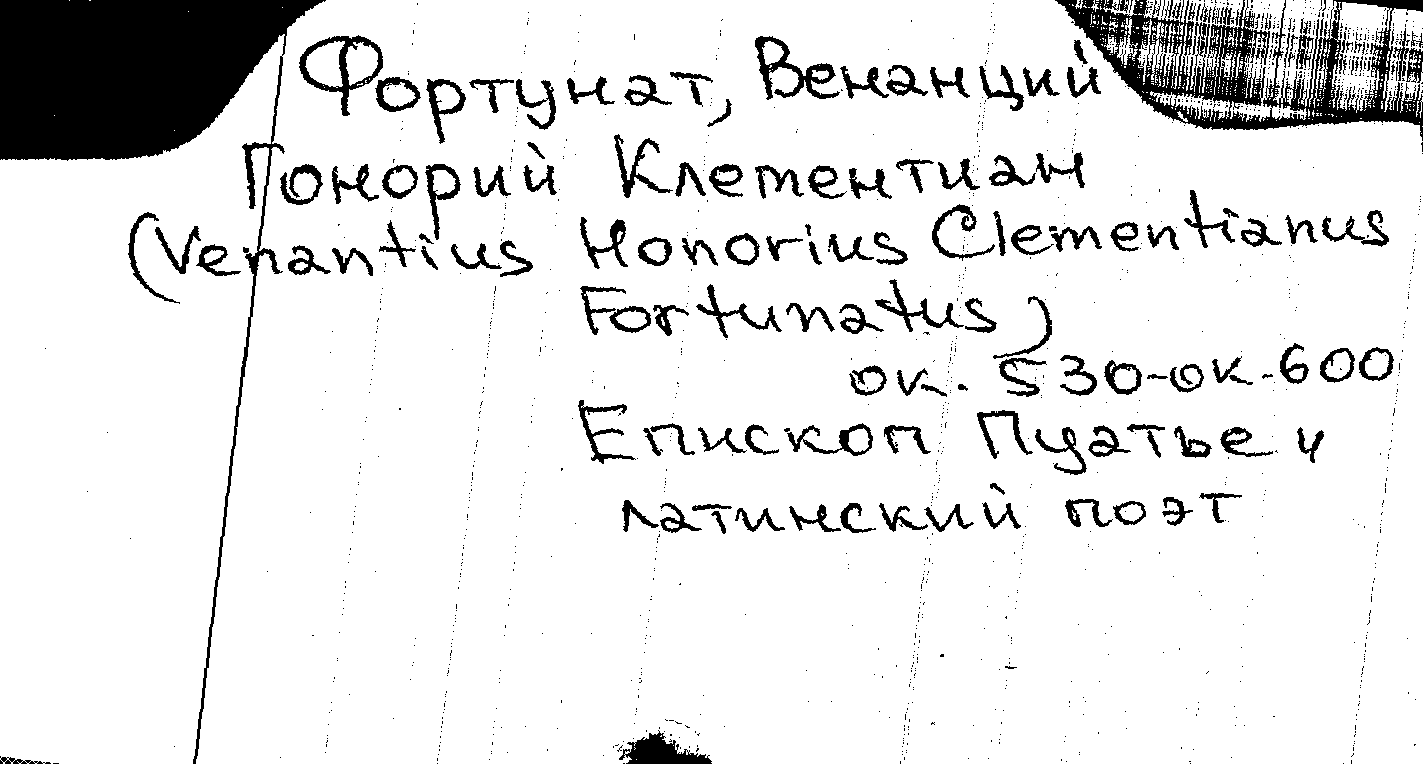 Фортунат, Венанций
Гонорий Клементиан
(Venantius Honorius Clementianus
Fortunatus)
ок. 530-ок.600
Епископ Пуатье и
латинский поэт